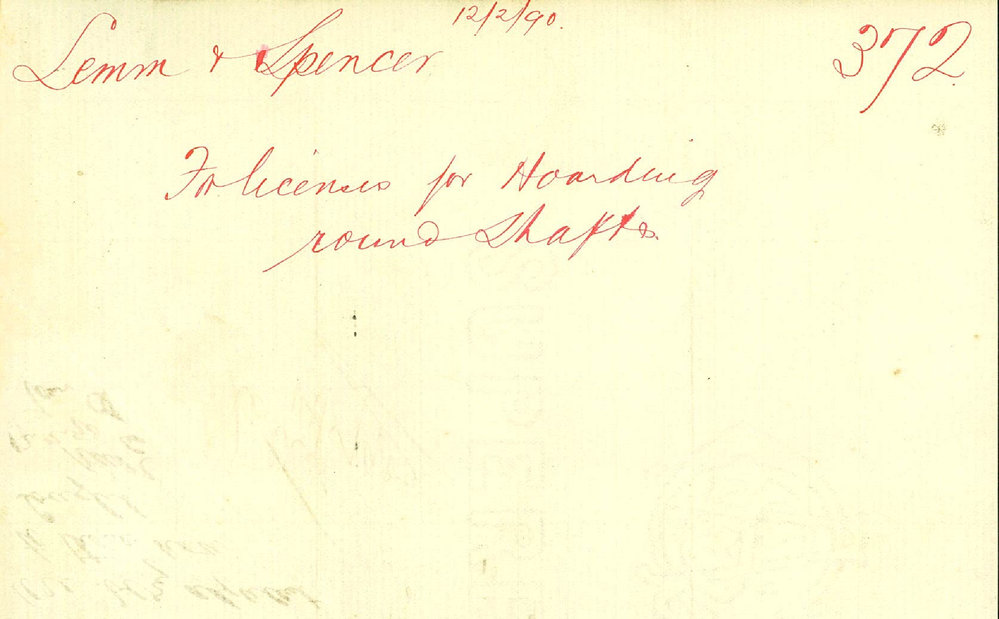 12/2/90.
Lemm & Spencer 372
For licenses for Hoarding
round Shafts.